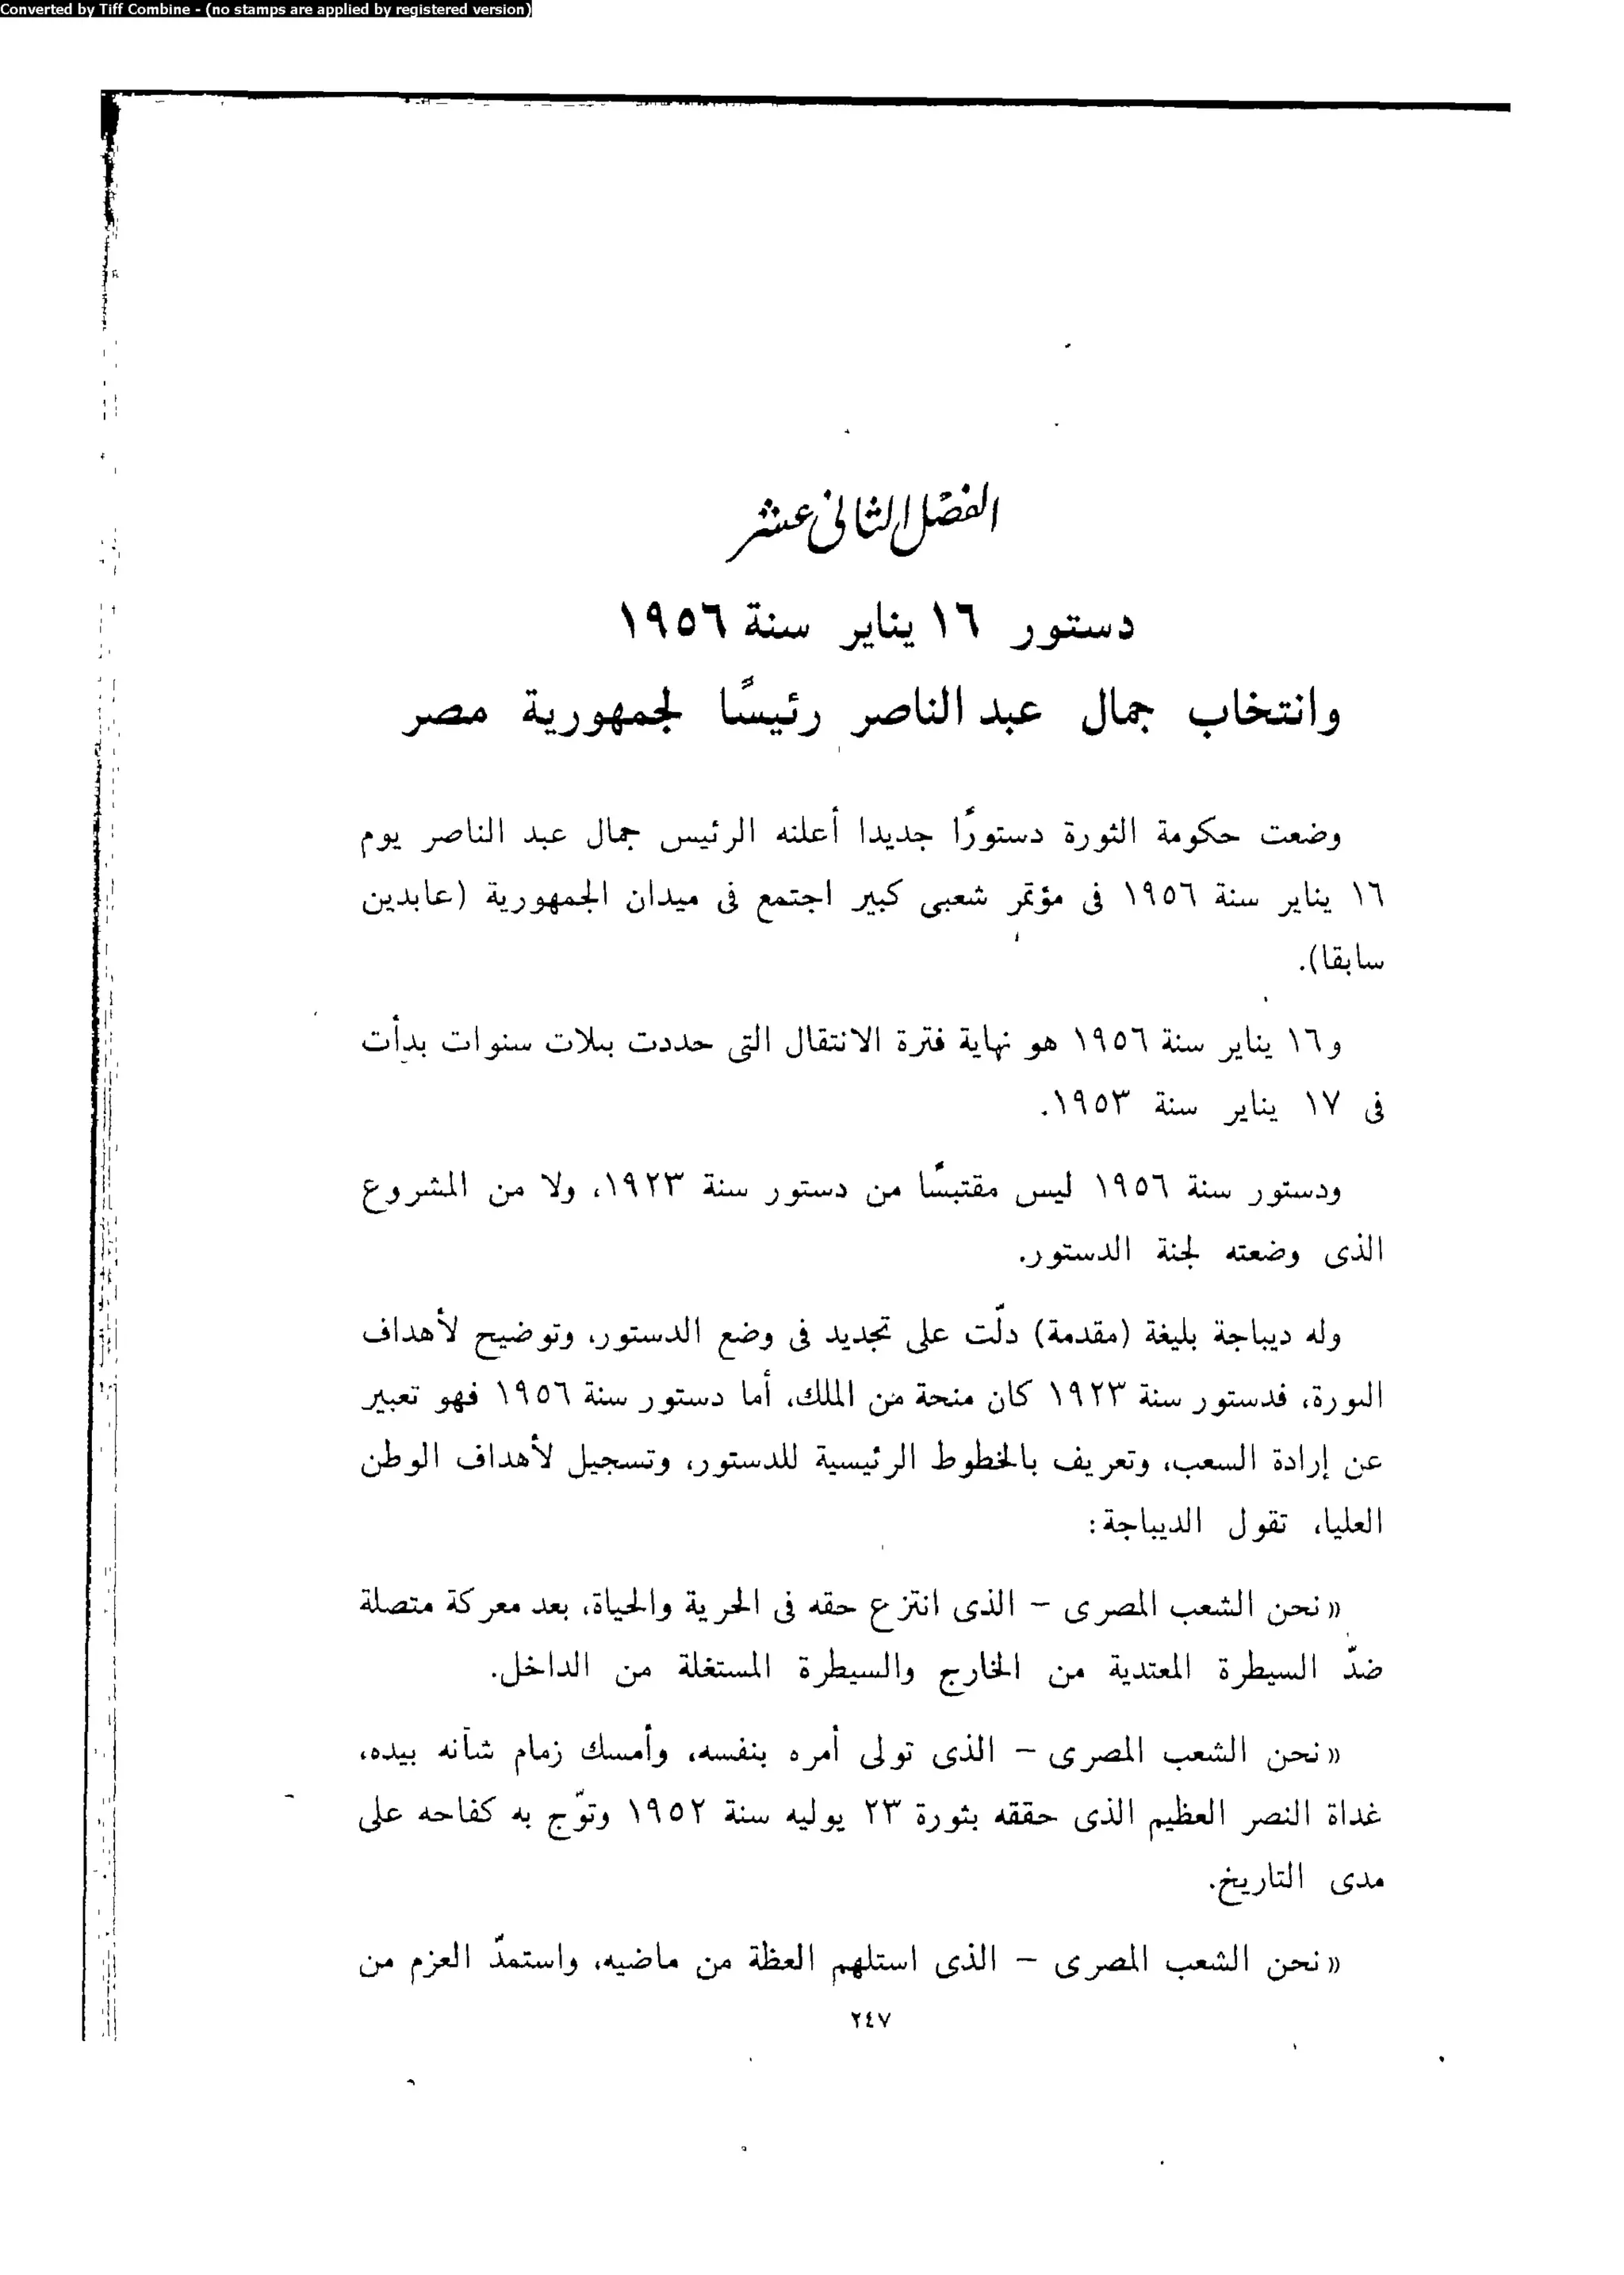 Converted by Tiff Combine - (no stamps are applied by registered version)
الفصل الثانى عشر
دستور ١٦ يناير سنة ١٩٥٦
وانتخاب جمال عبد الناصر رئيسًا لجمهورية مصر
وضعت حكومة الثورة دستورًا جديدا أعلنه الرئيس جمال عبد الناصر يوم
١٦ يناير سنة ١٩٥٦ فى مؤتمر شعبى كبير اجتمع فى ميدان الجمهورية (عابدين
سابقا).
و١٦ يناير سنة ١٩٥٦ هو نهاية فترة الانتقال التى حددت بثلاث سنوات بدأت
فى ١٧ يناير سنة ١٩٥٣.
ودستور سنة ١٩٥٦ ليس مقتبسًا من دستور سنة ١٩٢٣، ولا من المشروع
الذى وضعته لجنة الدستور.
وله ديباجة بليغة (مقدمة) دلّت على تجديد فى وضع الدستور، وتوضيح لأهداف
الثورة، فدستور سنة ١٩٢٣ كان منحة من الملك، أما دستور سنة ١٩٥٦ فهو تعبير
عن إرادة الشعب، وتعريف بالخطوط الرئيسية للدستور، وتسجيل لأهداف الوطن
العليا، تقول الديباجة:
«نحن الشعب المصرى – الذى انتزع حقه فى الحرية والحياة، بعد معركة متصلة
ضدّ السيطرة المعتدية من الخارج والسيطرة المستغلة من الداخل.
«نحن الشعب المصرى – الذى تولى أمره بنفسه، وأمسك زمام شأنه بيده،
غداة النصر العظيم الذى حققه بثورة ٢٣ يوليه سنة ١٩٥٢ وتوّج به كفاحه على
مدى التاريخ.
«نحن الشعب المصرى – الذى استلهم العظة من ماضيه، واستمدّ العزم من
٢٤٧